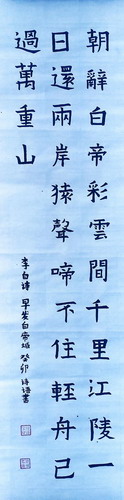 朝辭白帝彩雲間千里江陵一
日還兩岸猿聲啼不住輕舟已
過萬重山
李白詩早发白帝城癸卯